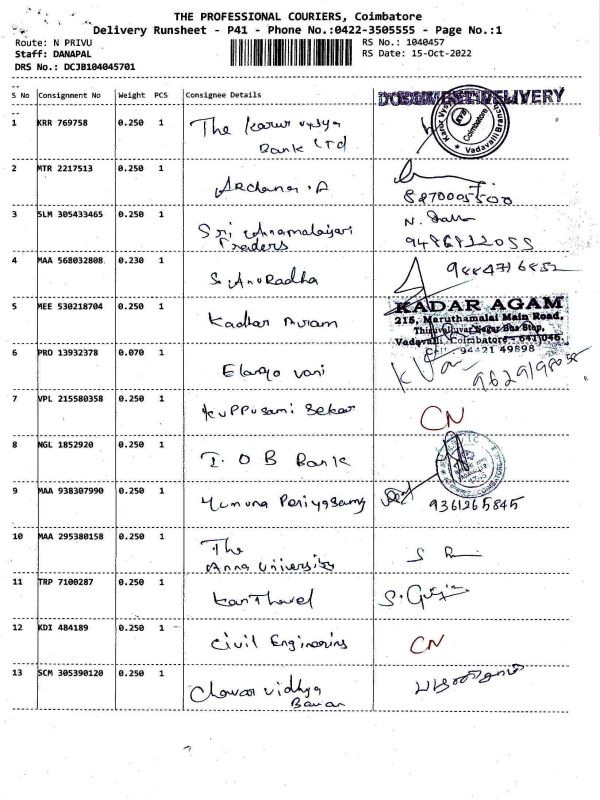 THE PROFESSIONAL COURIERS, Coimbatore
Delivery Runsheet - P41 - Phone No.:0422-3505555 - Page No.:1
Route: N PRIVU RS No.: 1040457
Staff: DANAPAL RS Date: 15-Oct-2022
DRS No.: DCJB104045701
S No Consignment No Weight PCS Consignee Details DELIVERY
1 KRR 769758 0.250 1 The Karur vysya
Bank Ltd
Coimbatore
Vadavalli Branch
2 MTR 2217513 0.250 1 Archana.A
8870005500
3 SLM 305433465 0.250 1 Sri Annamalaiyari
Traders
9486812055
4 MAA 568032808 0.230 1 S. Anuradha
9884716852
5 MEE 530218704 0.250 1 Kadhar
KADAR AGAM
215, Maruthamalai Main Road,
Thiruvalluvar Nagar Bus Stop,
Vadavalli, Coimbatore - 641 046.
Cell : 94421 49898
6 PRO 13932378 0.070 1 Elango vani
7 VPL 215580358 0.250 1 Kuppusami Sekar CN
8 NGL 1852920 0.250 1 I O B Bank
9 MAA 938307990 0.250 1 Yumuna Periyasamy
9361265845
10 MAA 295380158 0.250 1 The
Anna University
11 TRP 7100287 0.250 1 Kanthavel
12 KDI 484189 0.250 1 Civil Enginering CN
13 SCM 305390120 0.250 1 Chavar Vidhya
Bavan